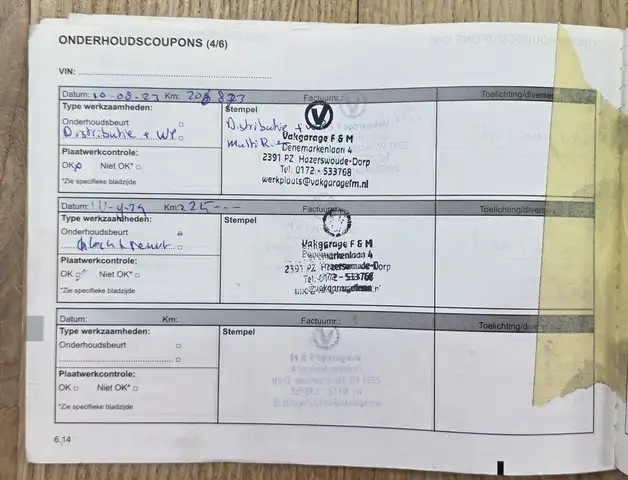 ONDERHOUDSCOUPONS (4/6)
VIN:
Datum: 10-08-23 Km: Factuurnr.: Toelichting/diversen
Type werkzaamheden: Stempel
Onderhoudsbeurt
Distributie + WP
Distributie +
multi
Vakgarage F & M
Denemarkenlaan 4
2391 PZ Hazerswoude-Dorp
Tel. 0172 - 533768
werkplaats@vakgaragefm.nl
Plaatwerkcontrole:
OK Niet OK*
*Zie specifieke bladzijde
Datum: Km: 225--- Factuurnr. Toelichting/diversen
Type werkzaamheden: Stempel
Onderhoudsbeurt
beurt
Vakgarage F & M
Denemarkenlaan 4
2391 PZ Hazerswoude-Dorp
Tel. 0172 - 533768
Plaatwerkcontrole:
OK Niet OK*
*Zie specifieke bladzijde
Datum: Km: Factuurnr.: Toelichting/diversen
Type werkzaamheden: Stempel
Onderhoudsbeurt
Plaatwerkcontrole:
OK Niet OK*
*Zie specifieke bladzijde
6.14